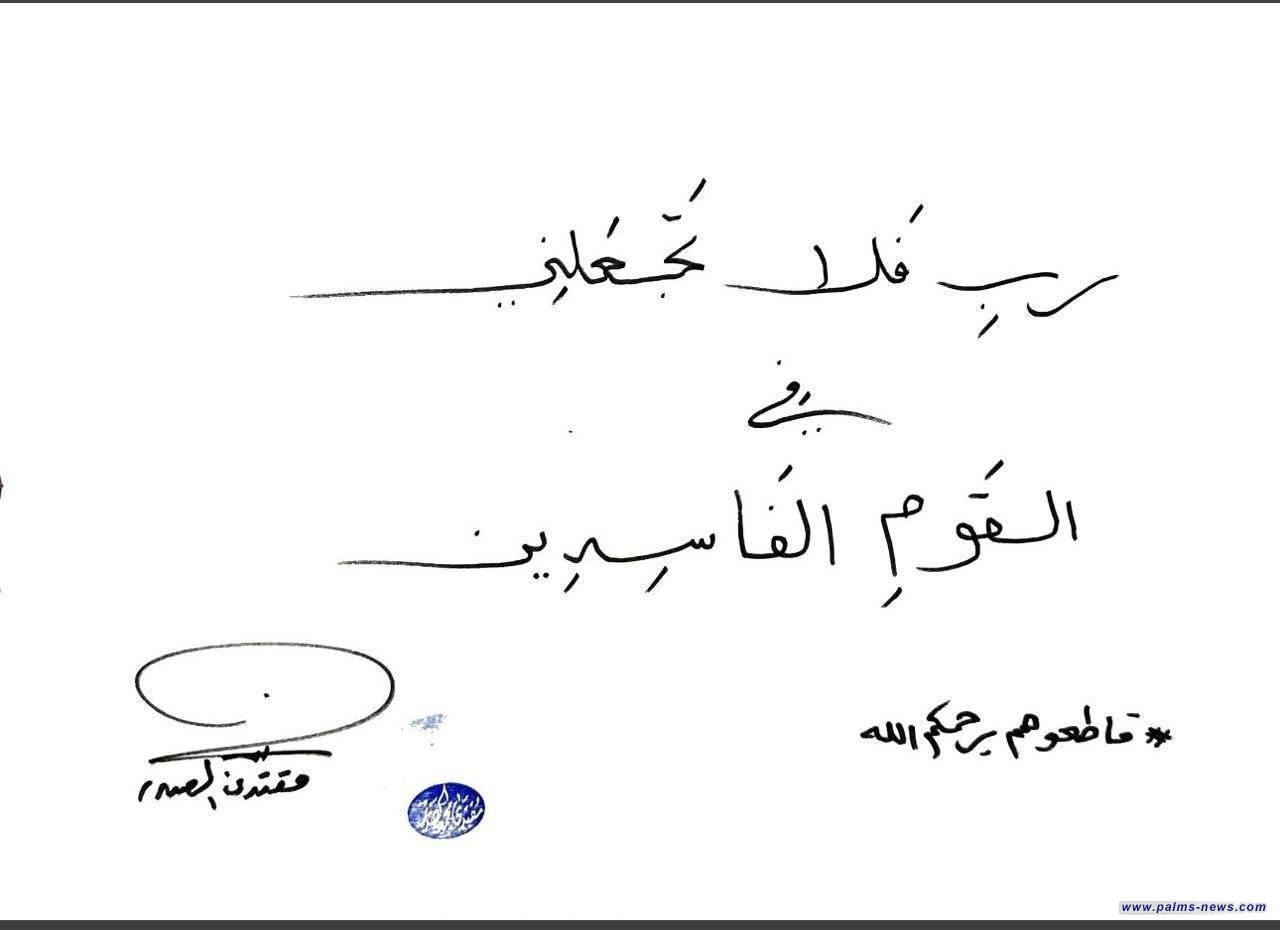 ربِ فَلا تَجعَلنِي
فِي
القَومِ الفَاسِدِين
* قاطعوهم يرحمكم الله
مقتدى الصدر
www.palms-news.com